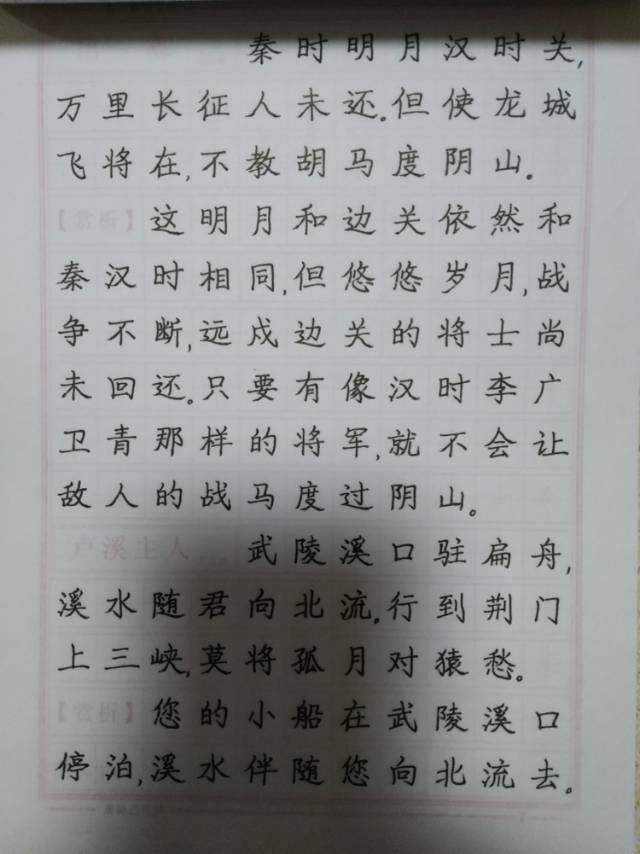 秦时明月汉时关,
万里长征人未还。但使龙城
飞将在,不教胡马度阴山。
【赏析】这明月和边关依然和
秦汉时相同,但悠悠岁月,战
争不断,远戍边关的将士尚
未回还。只要有像汉时李广
卫青那样的将军,就不会让
敌人的战马度过阴山。
卢溪主人 武陵溪口驻扁舟,
溪水随君向北流。行到荆门
上三峡,莫将孤月对猿愁。
【赏析】您的小船在武陵溪口
停泊,溪水伴随您向北流去。